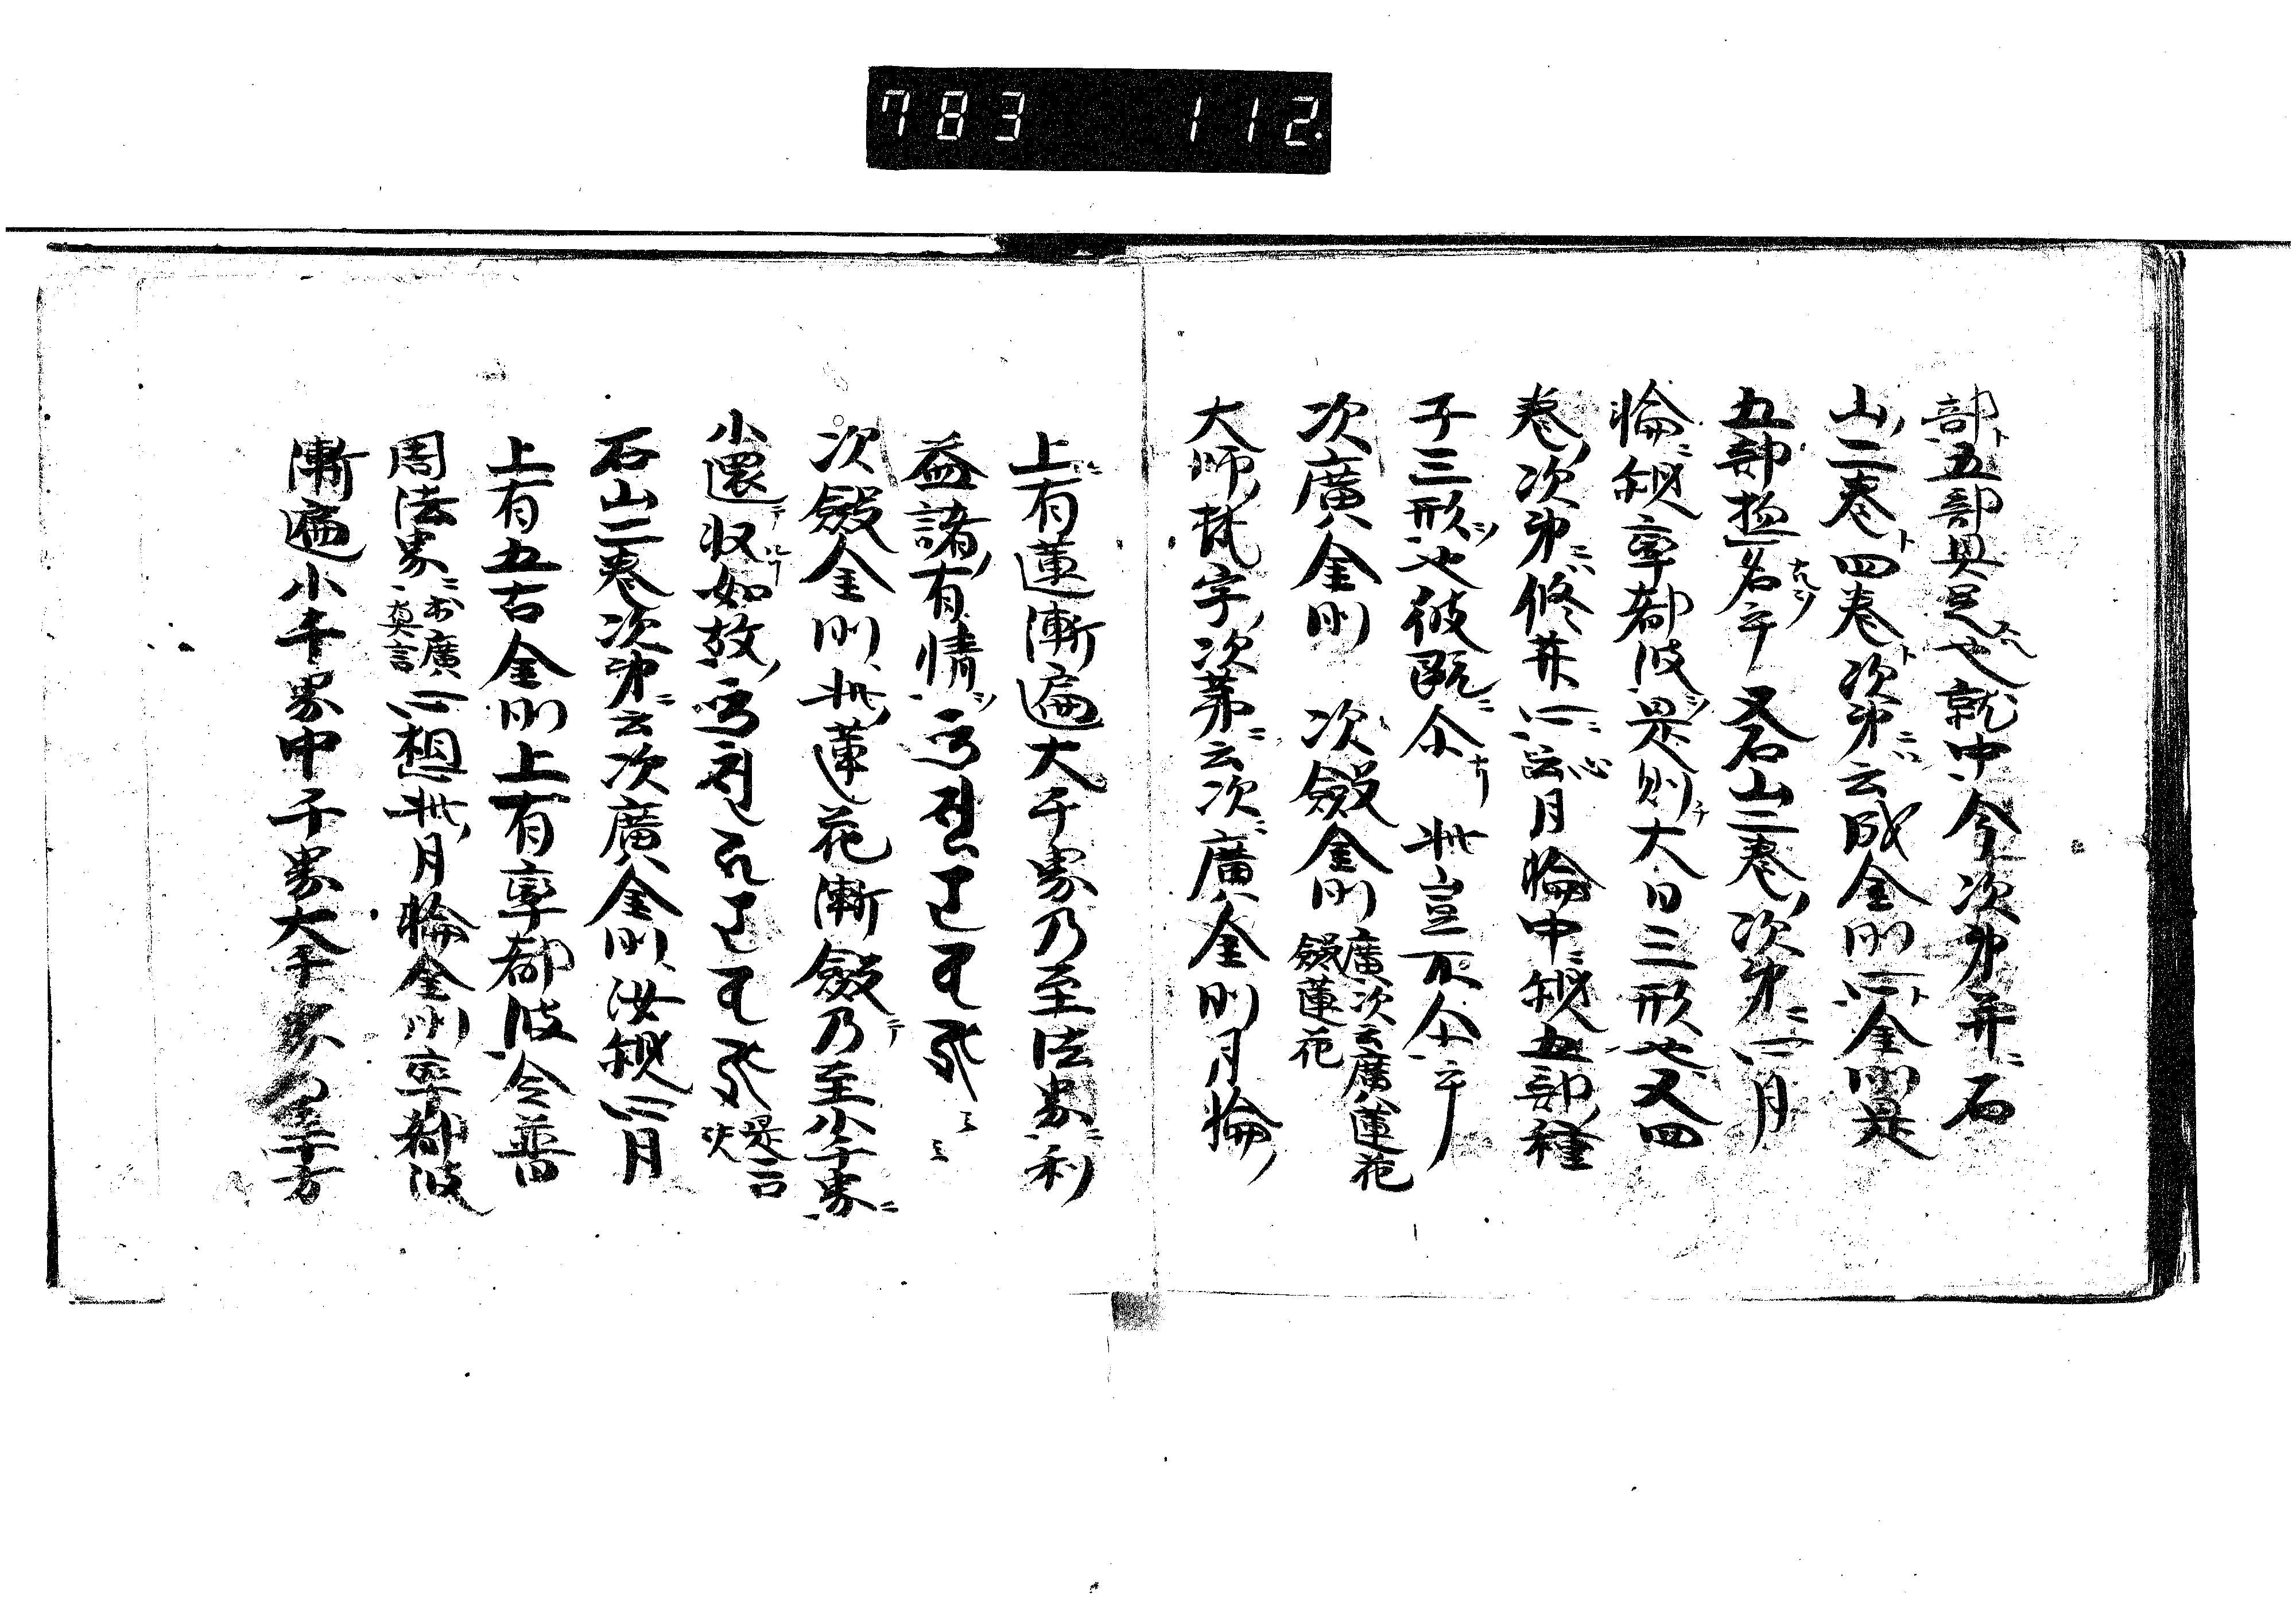 783 112
部五部具足也就中今次第并石
山二巻四巻次第云成金剛心金剛是
五部捴名乎又石山二巻次第心月
輪観率都波是則大日三形也又四
巻次第修菩心云月輪中観五部種
子三形也彼既尒此豈不尒乎
次廣金剛 次斂金剛 廣次云廣蓮花 斂蓮花
大師梵字次第云次廣金剛月輪
上有蓮漸遍大千界乃至法界利
益諸有情
次斂金剛此蓮花漸斂乃至小千界
小還収如故 是言
石山二巻次第云次廣金剛汝観心月
上有五古金剛上有率都波令普
周法界 廣 真言 心想此月輪金剛率都波
漸遍小千界中千界大千 十方